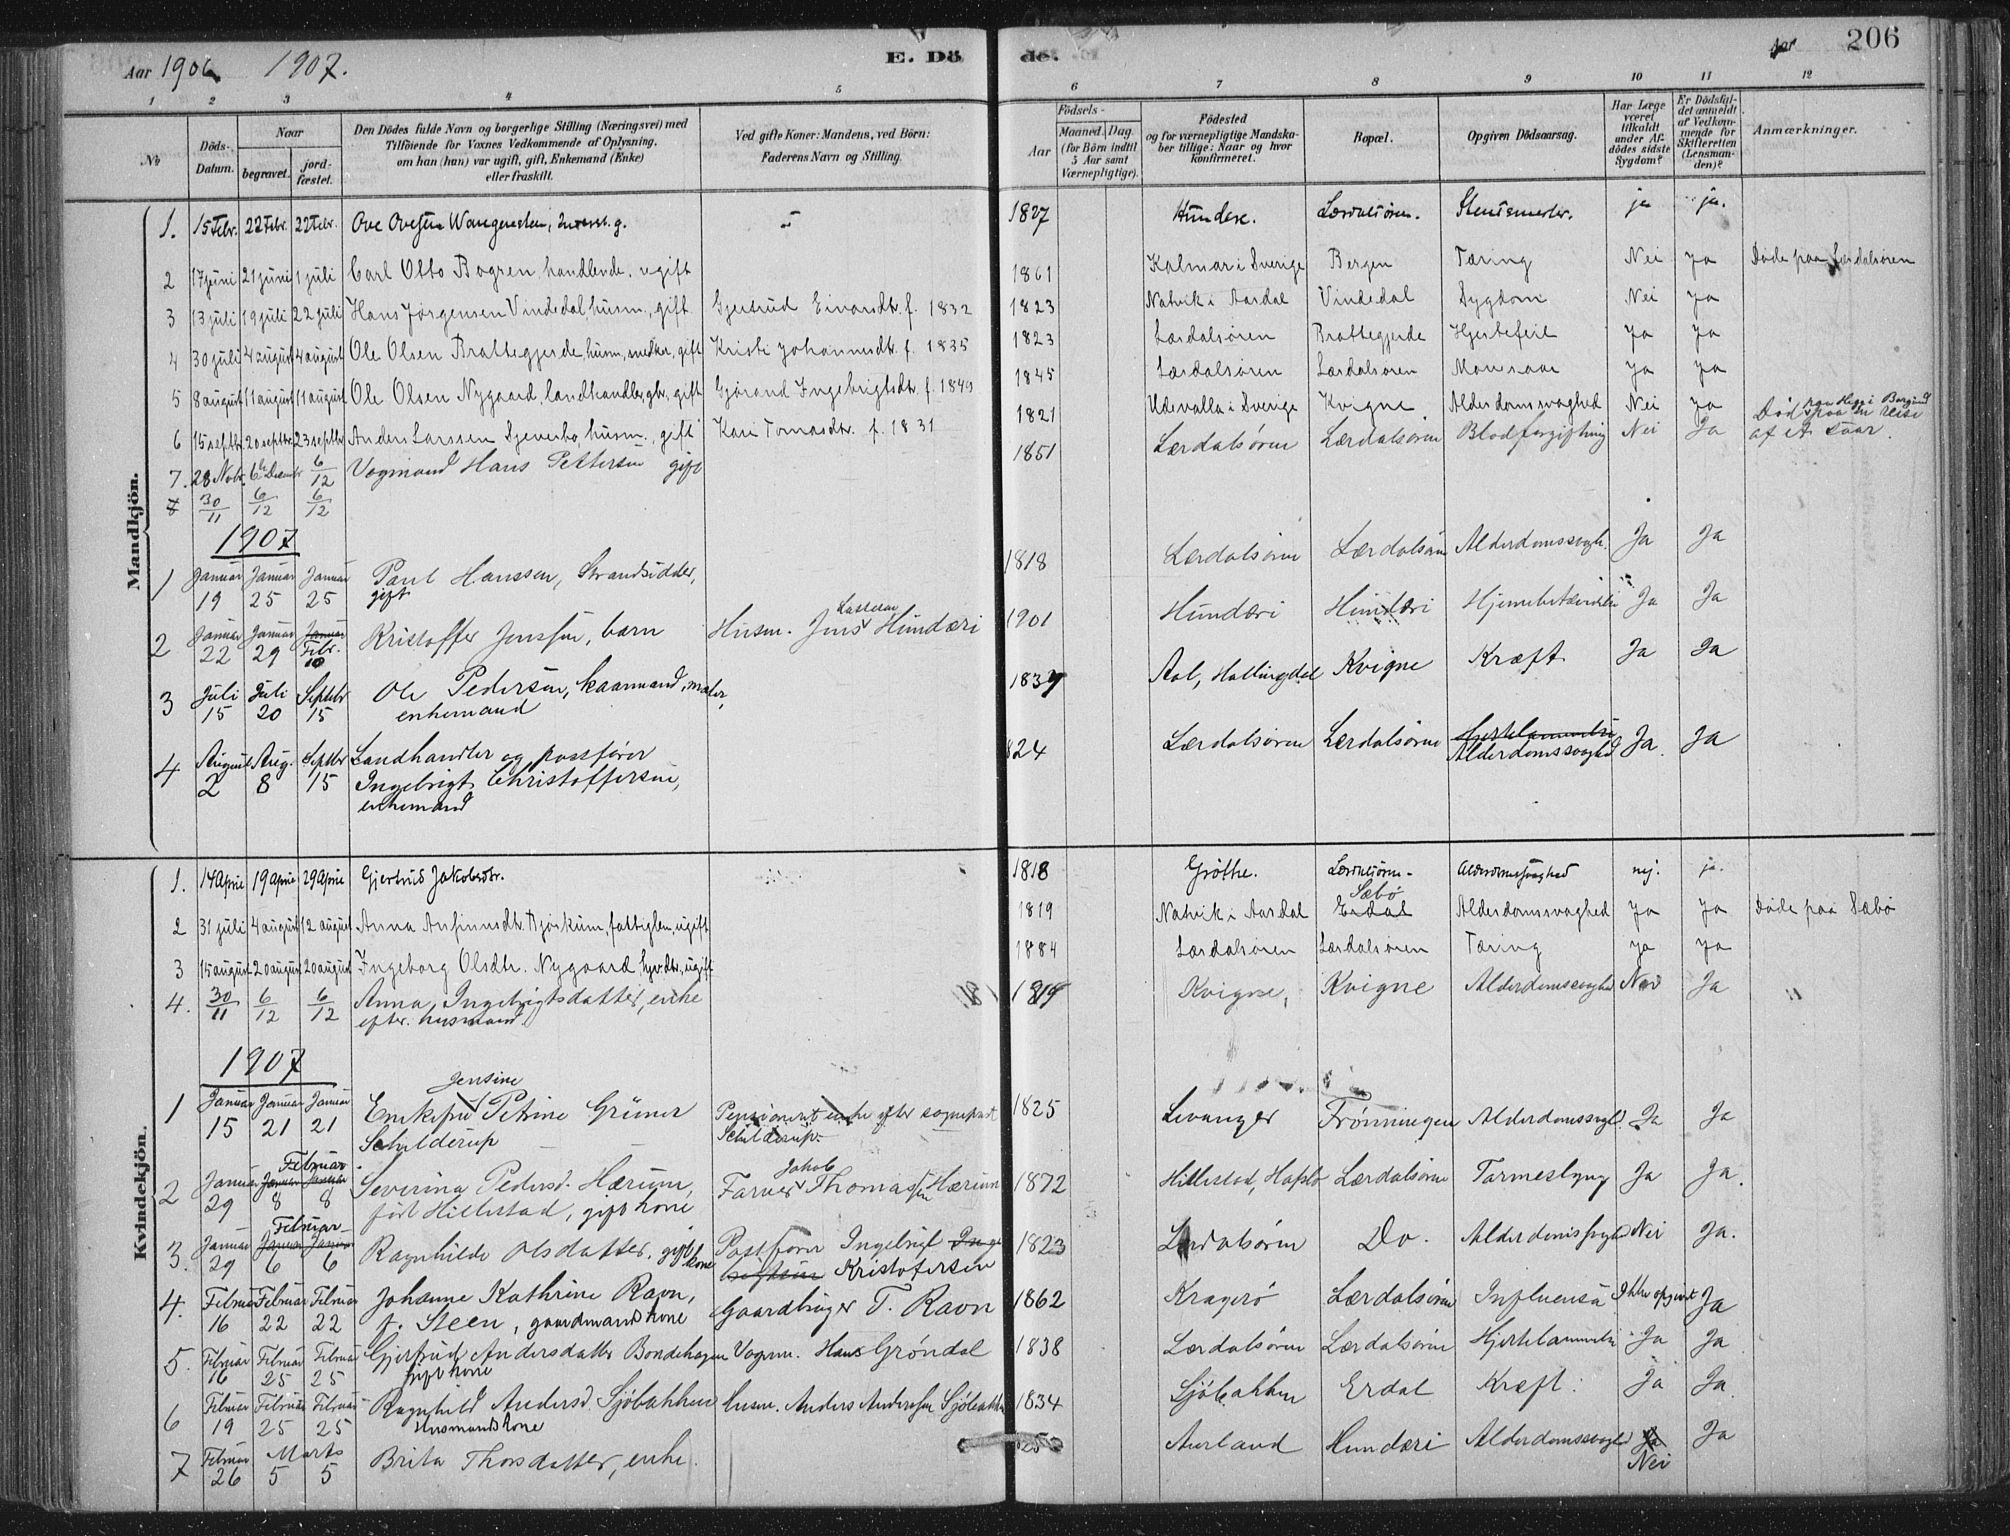 Aar 1906 1907. E. Dö de. Aar 206
1 2 3 4 5 6 7 8 9 10 11 12
No
Döds-Datum.
Naar
begravet.
jordfæstet.
Den Dödes fulde Navn og borgerlige Stilling (Næringsvei) med
Tilföiende for Voxnes Vedkommende af Oplysning.
om han (hun) var ugift, gift, Enkemand (Enke)
eller fraskilt.
Ved gifte Koner: Mandens, ved Börn:
Faderens Navn og Stilling.
Födsels-
Aar
Maaned. Dag.
(for Börn indtil
5 Aar samt
Værnepligtige).
Födested
og for værnepligtige Mandska-
ber tillige: Naar og hvor
konfirmeret.
Bopæl.
Opgiven Dödsaarsag.
Har Læge
været
tilkaldt
under Af-
dödes sidste
Sygdom?
Er Dödsfal-
det anmeldt
af Vedkom-
mende for
Skifteretten
(Lensman-
den)?
Anmærkninger.
Mandkjön.
1. 15 Febr. 22 Febr. 22 Febr. Ove Ovesen Wangensteen, g. 1827 Hundere. Lærdalsøren. ja ja.
2 17 juni 21 juni 1 juli Carl Otto Bogren, handlende, ugift 1861 Kalmar i Sverige Bergen Tæring Nei Ja Døde paa Lærdalsøren
3 13 juli 19 juli 22 juli Hans Jørgensen Vindedal, husm., gift Gjertrud Eivandtr. f. 1832 1823 Natvik i Aardal Vindedal Sygdom Nei Ja
4 30 juli 4 august 4 august Ole Olsen Brattegjerde, husm., snedker, gift Kristi Johannesdtr. f. 1835 1823 Lærdalsøren Brattegjerde Hjertefeil Ja Ja
5 8 august 11 august 11 august Ole Olsen Nygaard, landhandler, gift Gjørand Ingebrigtsdtr. f. 1849 1845 Lærdalsøren Lærdalsøren Ja Ja
6 15 septbr 20 septbr 23 septbr Anders Larssen husm., gift Kari Tomasdtr. f. 1831 1821 Udevalla i Sverige Kvigne Alderdomssvaghed Nei Ja Død paa en reise
7. 28 Novb. 6 Decembr 6/12 Vogmand Hans Pettersen gift 1851 Lærdalsøren Lærdalsøren Blodforgiftning Nei Ja af et saar.
30/11 6/12 6/12
1907
1 Januar 19 Januar 25 Januar 25 Paul Hanssen, Strandsidder, gift 1818 Lærdalsøren Lærdalsøren Alderdomssvagh. Ja Ja
2 Januar 22 Januar 29 Januar Febr. 10 Kristoffer Jenssen, barn Husm. Jens Hundæri 1901 Hundæri Hundæri Ja Ja
3 Juli 15 Juli 20 Septebr 15 Ole Pedersen, kaarmand, maler, enkemand Aal, Hallingdal Kvigne Kræft Ja Ja
4 August 2 Aug. 8 Septbr 15 Landhandler og postfører
Ingebrigt Christoffersen,
enkemand 824 Lærdalsøren Lærdalsøren Alderdomssvaghed Ja. Ja
Kvindekjön.
1. 14 April 19 April 29 April Gjertrud Jakobsdtr. 1818 Grøthe. Lærdalsøren. Alderdomssvaghed nej. ja.
2 31 juli 4 august 12 august Anna Anfinnsdtr. Bjørkum, fattiglem, ugift 1819 Natvik i Aardal Erdal Sæbø Alderdomssvaghed Ja Ja Døde paa Sæbø
3 15 august 20 august 20 august Ingeborg Olsdtr. Nygaard, ugift 1884 Lærdalsøren Lærdalsøren Tæring Ja Ja
4. 30/11 6/12 6/12 Anna Ingebrigtsdatter, enke
efter husmand. 1819 Kvigne, Kvigne Alderdomssvaghed Nei Ja
1907
1 Januar 15 Januar 21 Januar 21 Enkefru Jensine Petrine Grüner
Schilderup Pensioneret enke efter sognepræst
Schilderup 1825 Levanger Frønningen Alderdomssvagh. Ja Ja
2 Januar 29 Februar 8 8 Severina Pedersd. Hærum,
født Hillestad, gift kone Farver Jakob Thomassen Hærum 1872 Hillestad, Hafslo Lærdalsøren Tarmeslyng Ja Ja.
3. Januar 29 Februar 6 6 Ragnhilde Olsdatter, gift kone Postfører Ingebrigt Kristofersen 1823 Lærdalsøren Do. Alderdomssvaghed Nei Ja.
4. Februar 16 Februar 22 Februar 22 Johanne Kathrine Ravn,
f. Steen, gaardmands kone Gaardbruger T. Ravn 1862 Kragerø Lærdalsøren Influensa Ikke opgivet Ja
5. Februar 16 Februar 25 Februar 25 Gjertrud Andersdatter Bondehagen
gift kone Vogm. Hans Grøndal 1838 Lærdalsøren Lærdalsøren Hjertelammelse Ja Ja
6 Februar 19 Februar 25 Februar 25 Ragnhild Andersd. Sjøbakken
Husmands kone Husm. Anders Anderssen Sjøbakken 1834 Sjøbakken Erdal Kræft. Ja Ja.
7 Februar 26 Marts 5 5 Brita Thorsdatter, enke. Aurland Hundæri Alderdomssvaghed Ja Nei Ja